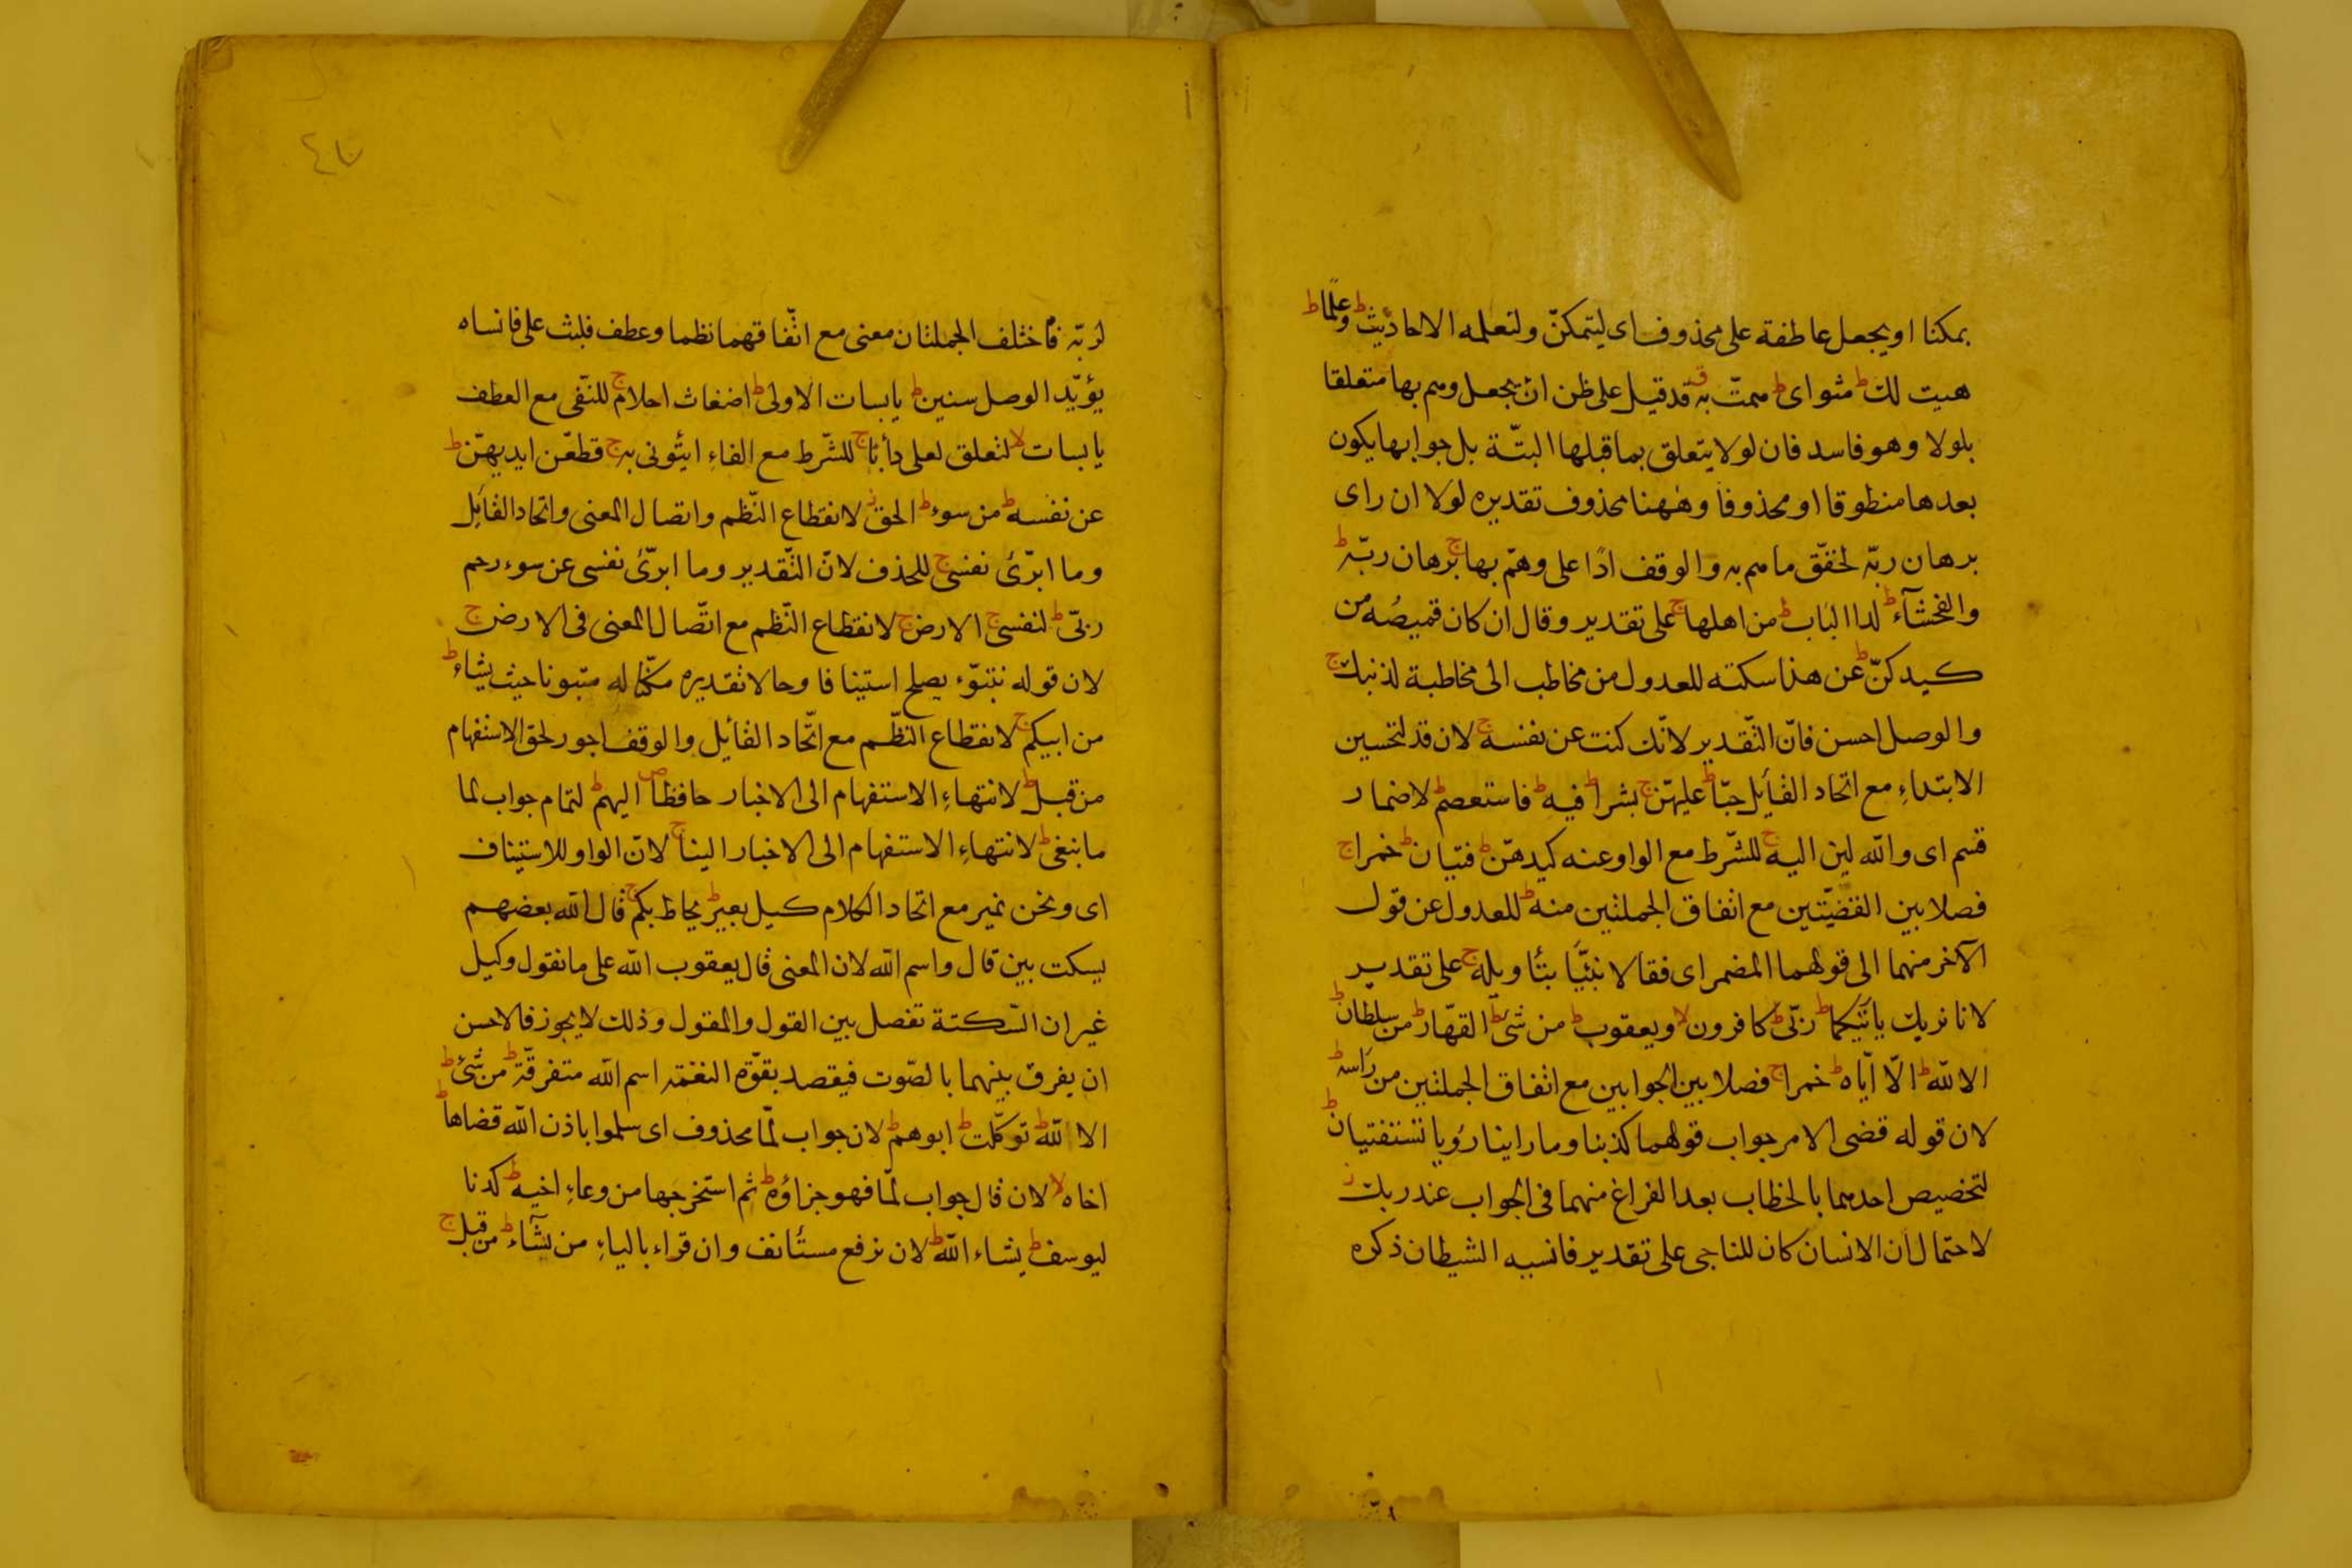 بمكنا او يجعل عاطفة على محذوف اى ليتمكنّ ولنعلمه الاحاديث ط وعلما ط
هيت لك ط مثواى ط همت به ق قد قيل على ظن ان يجعل وهم بها متعلقا
بلولا وهو فاسد فان لولا يتعلق بما قبلها البتّة بل جوابها يكون
بعدها منطوقا او محذوفا وههنا محذوف تقديره لولا ان راى
برهان ربّه لحقّق ما هم به والوقف اذًا على وهمّ بها ج برهان ربّه ط
والفحشآء ط لدا الباب ط من اهلها ج على تقدير وقال ان كان قميصُه من
كيدكنّ ط عن هذا سكته للعدول من مخاطب الى مخاطبة لذنبك ج
والوصل احسن فانّ التّقدير لانّك كنت عن نفسه ج لان قد لتحسين
الابتداءِ مع اتحاد القآيل حبّا ط عليهنّ ج بشرا ط فيه ط فاستعصم ط لاضمار
قسم اى والله لين اليه ج للشّرط مع الواو عنه كيدهنّ ط فتيان ط خمرا ج
فصلا بين القضيّتين مع اتفاق الجملتين منه ط للعدول عن قول
الآخر منهما الى قولهما المضمر اى فقالا نبّئنا بتأويله ج على تقدير
لانا نريك ياتيكما ط ربّى ط كافرون لا ويعقوب ط من شئ ط القهّار ط من سلطان ط
الا لله ط الّا ايّاه ط خمرا ج فصلا بين الجوابين مع اتفاق الجملتين من راسه ط
لان قوله قضى الامر جواب قولهما كذبنا وما راينا رؤيا تستفتيان ط
لتخصيص احدهما بالخطاب بعد الفراغ منهما فى الجواب عند ربك ز
لاحتمال ان الانسان كان للناجى على تقدير فانسيه الشيطان ذكره
٤٧
لربّه فاختلف الجملتان معنى مع اتّفاقهما نظما وعطف فلبث على فانساه
يؤيّد الوصل سنين ط يابسات الاولى ط اضغاث احلام ج للنّفى مع العطف
يابسات لا لتعلق لعلى دأبًا ج للشّرط مع الفاءِ ايتونى به ج قطعّن ايديهنّ ط
عن نفسه ط من سوء ط الحق ز لانقطاع النّظم واتصال المعنى واتحاد القآيل
وما ابرّئ نفسى ج للحذف لانّ التّقدير وما ابرّئ نفسى عن سوء رحم
ربّى ط لنفسى ج الارض ج لانقطاع النّظم مع اتّصال المعنى فى الارض ج
لان قوله نتبوّء يصلح استينافا وحالا تقديره مكّنا له متبونا حيث يشاء ط
من ابيكم ج لانقطاع النّظم مع اتّحاد القآيل والوقف اجود لحق الاستفهام
من قبل ط لانتهاءِ الاستفهام الى الاخبار حافظا ص اليهم ط لتمام جواب لما
ما نبغى ط لانتهاءِ الاستفهام الى الاخبار الينا ج لانّ الواو للاستيناف
اى ونحن نمير مع اتحاد الكلام كيل بعير ط يحاط بكم ج قال الله بعضهم
يسكت بين قال واسم الله لان المعنى قال يعقوب الله على ما نقول وكيل
غير ان السّكتة تفصل بين القول والمقول وذلك لا يجوز فالاحسن
ان يفرق بينهما بالصّوت فيقصد بقوّة النغمة اسم الله متفرقّة ط من شئ ط
الا لله ط توكّلت ط ابوهم ط لان جواب لمّا محذوف اى سلموا باذن الله قضاها ط
اخاه لا لان قال جواب لمّا فهو جزاؤه ط ثم استخرجها من وعاءِ اخيه ط كدنا
ليوسف ط يشاء الله ط لان نرفع مستأنف وان قراء بالياءِ من يشآء ط من قبل ج